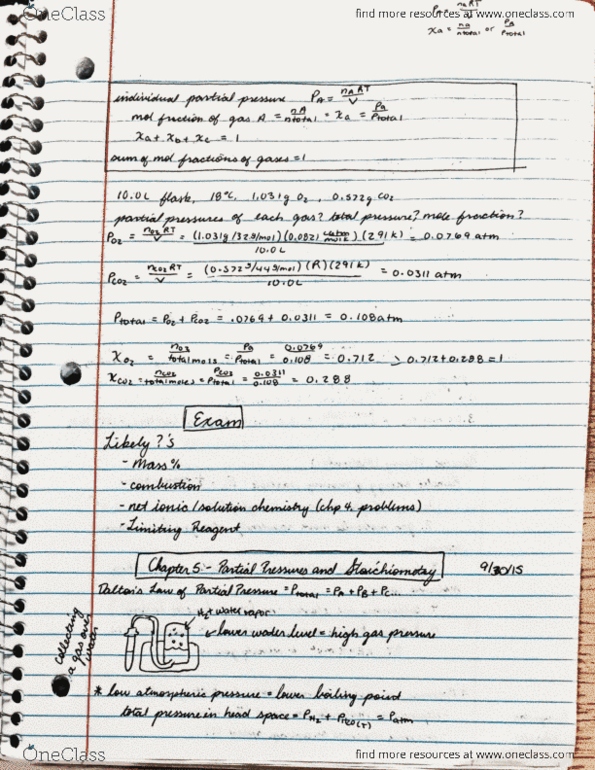 OneClass
find more resources at www.oneclass.com
nART
xa = na/ntotal or Pa/Ptotal
individual partial pressure PA = nART/V
mol fraction of gas A = nA/ntotal = xa = Pa/Ptotal
xa + xb + xc = 1
sum of mol fractions of gases = 1
10.0L flask, 18°C, 1.031g O2, 0.572g CO2
partial pressures of each gas? total pressure? mole fraction?
PO2 = nO2RT/V = (1.031g/32g/mol)(0.0821 L·atm/mol·K)(291K)/10.0L = 0.0769 atm
PCO2 = nCO2RT/V = (0.572g/44g/mol)(R)(291K)/10.0L = 0.0311 atm
Ptotal = PO2 + PCO2 = .0769 + 0.0311 = 0.108atm
XO2 = nO2/total mols = Pa/Ptotal = 0.0769/0.108 = 0.712 > 0.712+0.288=1
XCO2 = nCO2/total moles = PCO2/Ptotal = 0.0311/0.108 = 0.288
Exam
Likely ?'s
- Mass %
- combustion
- net ionic/solution chemistry (chp 4 problems)
- Limiting Reagent
Chapter 5 - Partial Pressures and Stoichiometry 9/30/15
Dalton's Law of Partial Pressure = Ptotal = PA + PB + PC...
H2 + water vapor
lower water level = high gas pressure
collecting
a gas over
water
* low atmospheric pressure = lower boiling point
total pressure in head space = PH2 + PH2O(T) = Patm
OneClass
find more resources at www.oneclass.com